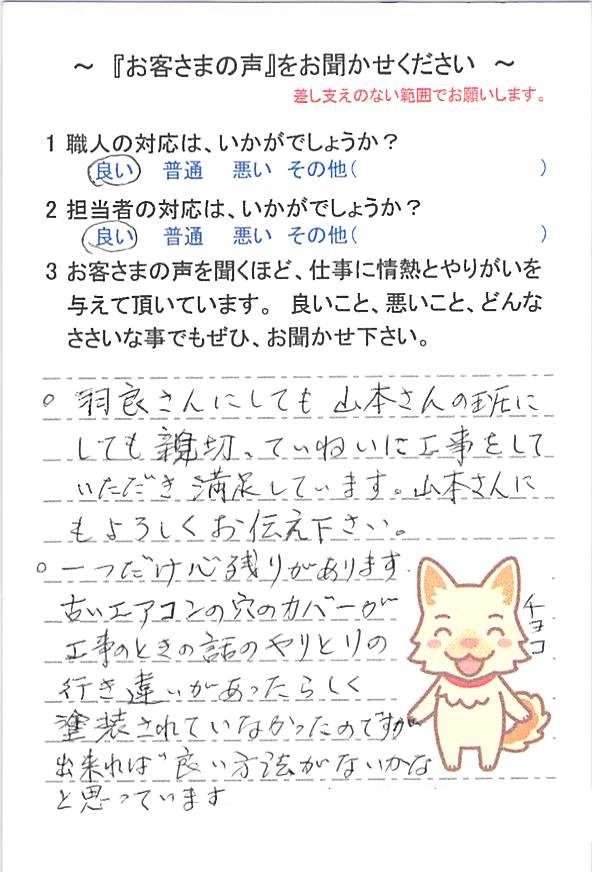 ～ 『お客さまの声』をお聞かせください ～
差し支えのない範囲でお願いします。
1 職人の対応は、いかがでしょうか？
良い 普通 悪い その他( )
2 担当者の対応は、いかがでしょうか？
良い 普通 悪い その他( )
3 お客さまの声を聞くほど、仕事に情熱とやりがいを
与えて頂いています。 良いこと、悪いこと、どんな
ささいな事でもぜひ、お聞かせ下さい。
○ 羽良さんにしても 山本さんの班に
しても 親切、ていねいに工事をして
いただき 満足しています。山本さんに
もよろしくお伝え下さい。
○ 一つだけ心残りがあります
古いエアコンの穴のカバーが
工事のときの話のやりとりの
行き違いがあったらしく
塗装されていなかったのですが
出来れば 良い方法がないかな
と思っています
チョコ